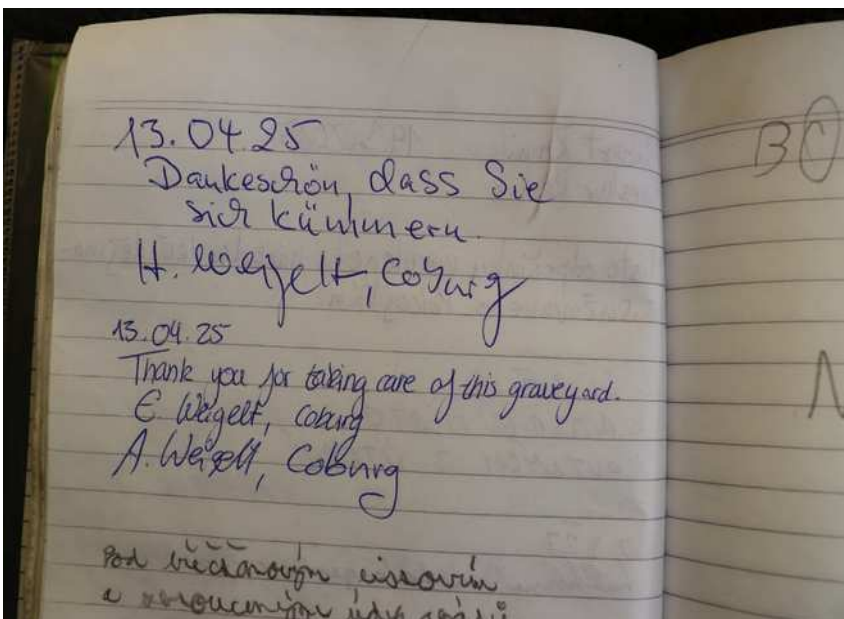 13.04.25
Dankeschön, dass Sie
sich kümmern.
H. Weigelt, Coburg
13.04.25
Thank you for taking care of this graveyard.
E. Weigelt, Coburg
A. Weigelt, Coburg
pod
a
B C